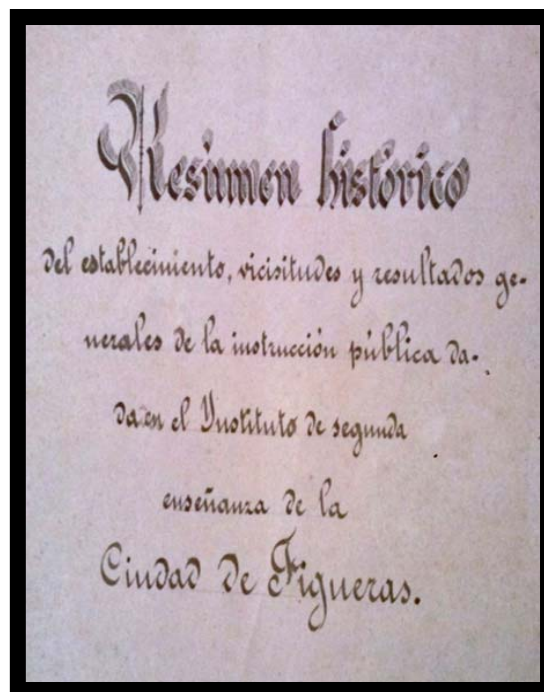 Resumen histórico
del establecimiento, vicisitudes y resultados ge-
nerales de la instrucción pública da-
da en el Instituto de segunda
enseñanza de la
Ciudad de Figueras.